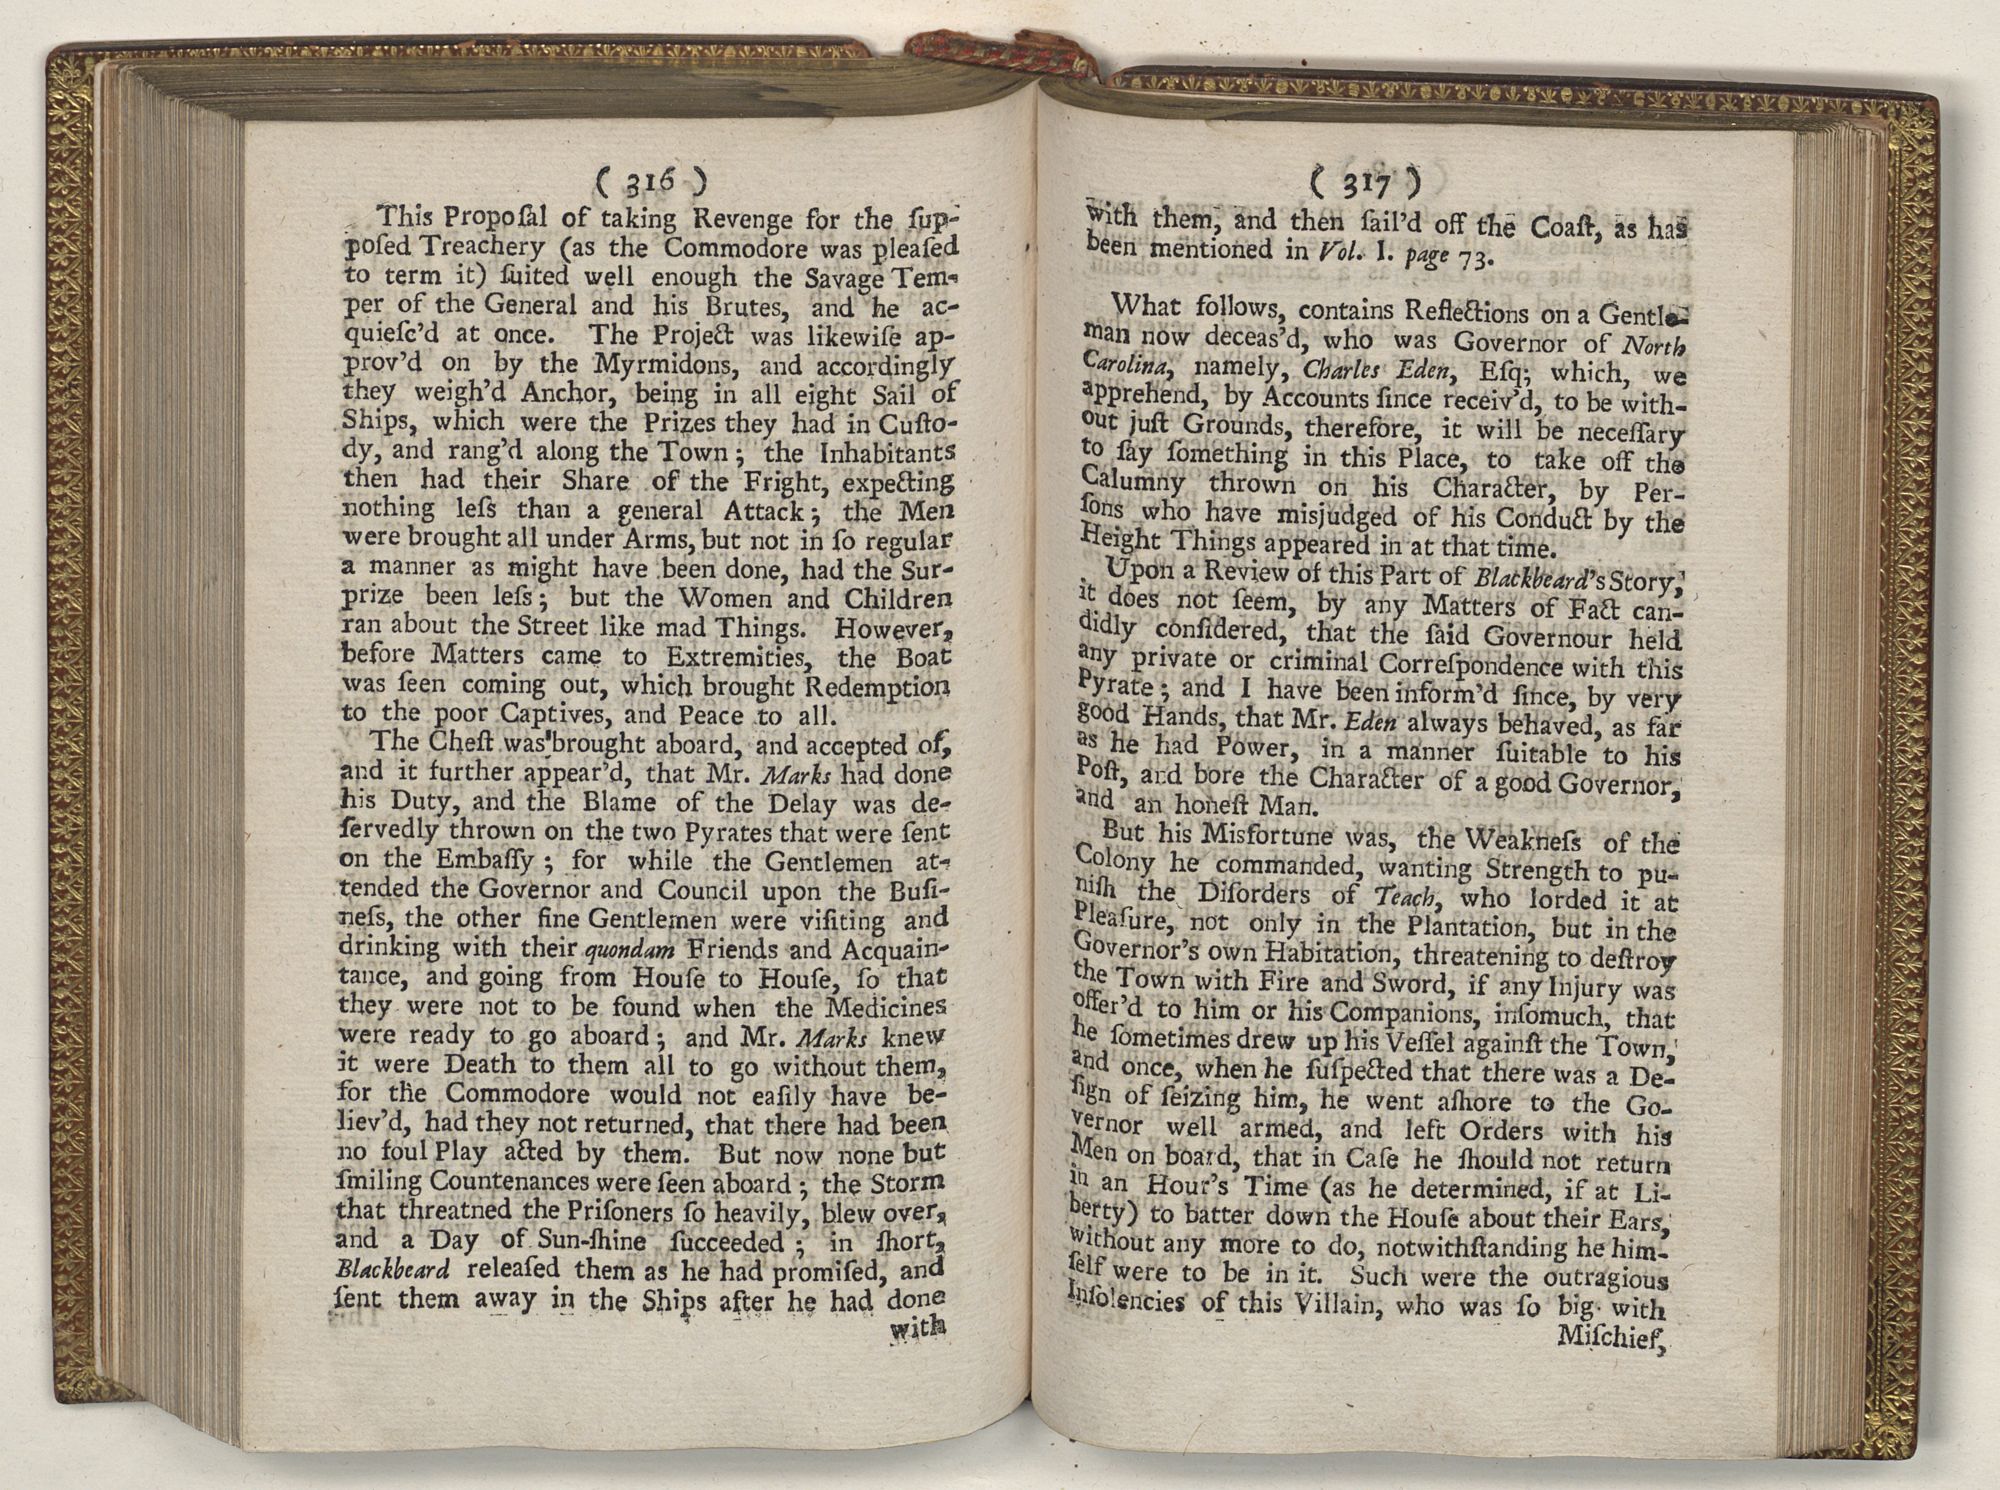 ( 316 )
This Propoſal of taking Revenge for the ſup-
poſed Treachery (as the Commodore was pleaſed
to term it) ſuited well enough the Savage Tem-
per of the General and his Brutes, and he ac-
quieſc'd at once. The Project was likewiſe ap-
prov'd on by the Myrmidons, and accordingly
they weigh'd Anchor, being in all eight Sail of
Ships, which were the Prizes they had in Cuſto-
dy, and rang'd along the Town; the Inhabitants
then had their Share of the Fright, expecting
nothing leſs than a general Attack; the Men
were brought all under Arms, but not in ſo regular
a manner as might have been done, had the Sur-
prize been leſs; but the Women and Children
ran about the Street like mad Things. However,
before Matters came to Extremities, the Boat
was ſeen coming out, which brought Redemption
to the poor Captives, and Peace to all.
The Cheſt was brought aboard, and accepted of,
and it further appear'd, that Mr. Marks had done
his Duty, and the Blame of the Delay was de-
ſervedly thrown on the two Pyrates that were ſent
on the Embaſſy; for while the Gentlemen at-
tended the Governor and Council upon the Buſi-
neſs, the other fine Gentlemen were viſiting and
drinking with their quondam Friends and Acquain-
tance, and going from Houſe to Houſe, ſo that
they were not to be found when the Medicines
were ready to go aboard; and Mr. Marks knew
it were Death to them all to go without them,
for the Commodore would not eaſily have be-
liev'd, had they not returned, that there had been
no foul Play acted by them. But now none but
ſmiling Countenances were ſeen aboard; the Storm
that threatned the Priſoners ſo heavily, blew over,
and a Day of Sun-ſhine ſucceeded; in ſhort,
Blackbeard releaſed them as he had promiſed, and
ſent them away in the Ships after he had done
with
( 317 )
with them, and then ſail'd off the Coaſt, as has
been mentioned in Vol. I. page 73.
What follows, contains Reflections on a Gentle-
man now deceas'd, who was Governor of North
Carolina, namely, Charles Eden, Eſq; which, we
apprehend, by Accounts ſince receiv'd, to be with-
out juſt Grounds, therefore, it will be neceſſary
to ſay ſomething in this Place, to take off the
Calumny thrown on his Character, by Per-
ſons who have misjudged of his Conduct by the
Height Things appeared in at that time.
Upon a Review of this Part of Blackbeard's Story,
it does not ſeem, by any Matters of Fact can-
didly conſidered, that the ſaid Governour held
any private or criminal Correſpondence with this
Pyrate; and I have been inform'd ſince, by very
good Hands, that Mr. Eden always behaved, as far
as he had Power, in a manner ſuitable to his
Poſt, and bore the Character of a good Governor,
and an honeſt Man.
But his Misfortune was, the Weakneſs of the
Colony he commanded, wanting Strength to pu-
niſh the Diſorders of Teach, who lorded it at
Pleaſure, not only in the Plantation, but in the
Governor's own Habitation, threatening to deſtroy
the Town with Fire and Sword, if any Injury was
offer'd to him or his Companions, inſomuch, that
he ſometimes drew up his Veſſel againſt the Town,
and once, when he ſuſpected that there was a De-
ſign of ſeizing him, he went aſhore to the Go-
vernor well armed, and left Orders with his
Men on board, that in Caſe he ſhould not return
in an Hour's Time (as he determined, if at Li-
berty) to batter down the Houſe about their Ears,
without any more to do, notwithſtanding he him-
ſelf were to be in it. Such were the outragious
Inſolencies of this Villain, who was ſo big with
Miſchief,